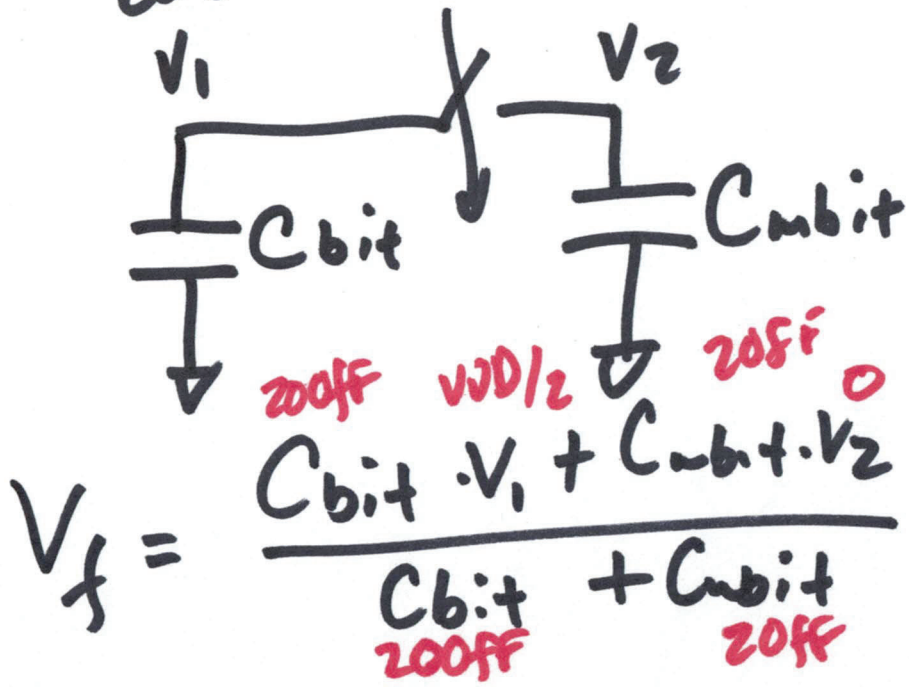 V1 V2
Cbit Cmbit
200fF VDD/2 20fF 0
Cbit · V1 + Cmbit · V2
Vf =
Cbit + Cmbit
200fF 20fF